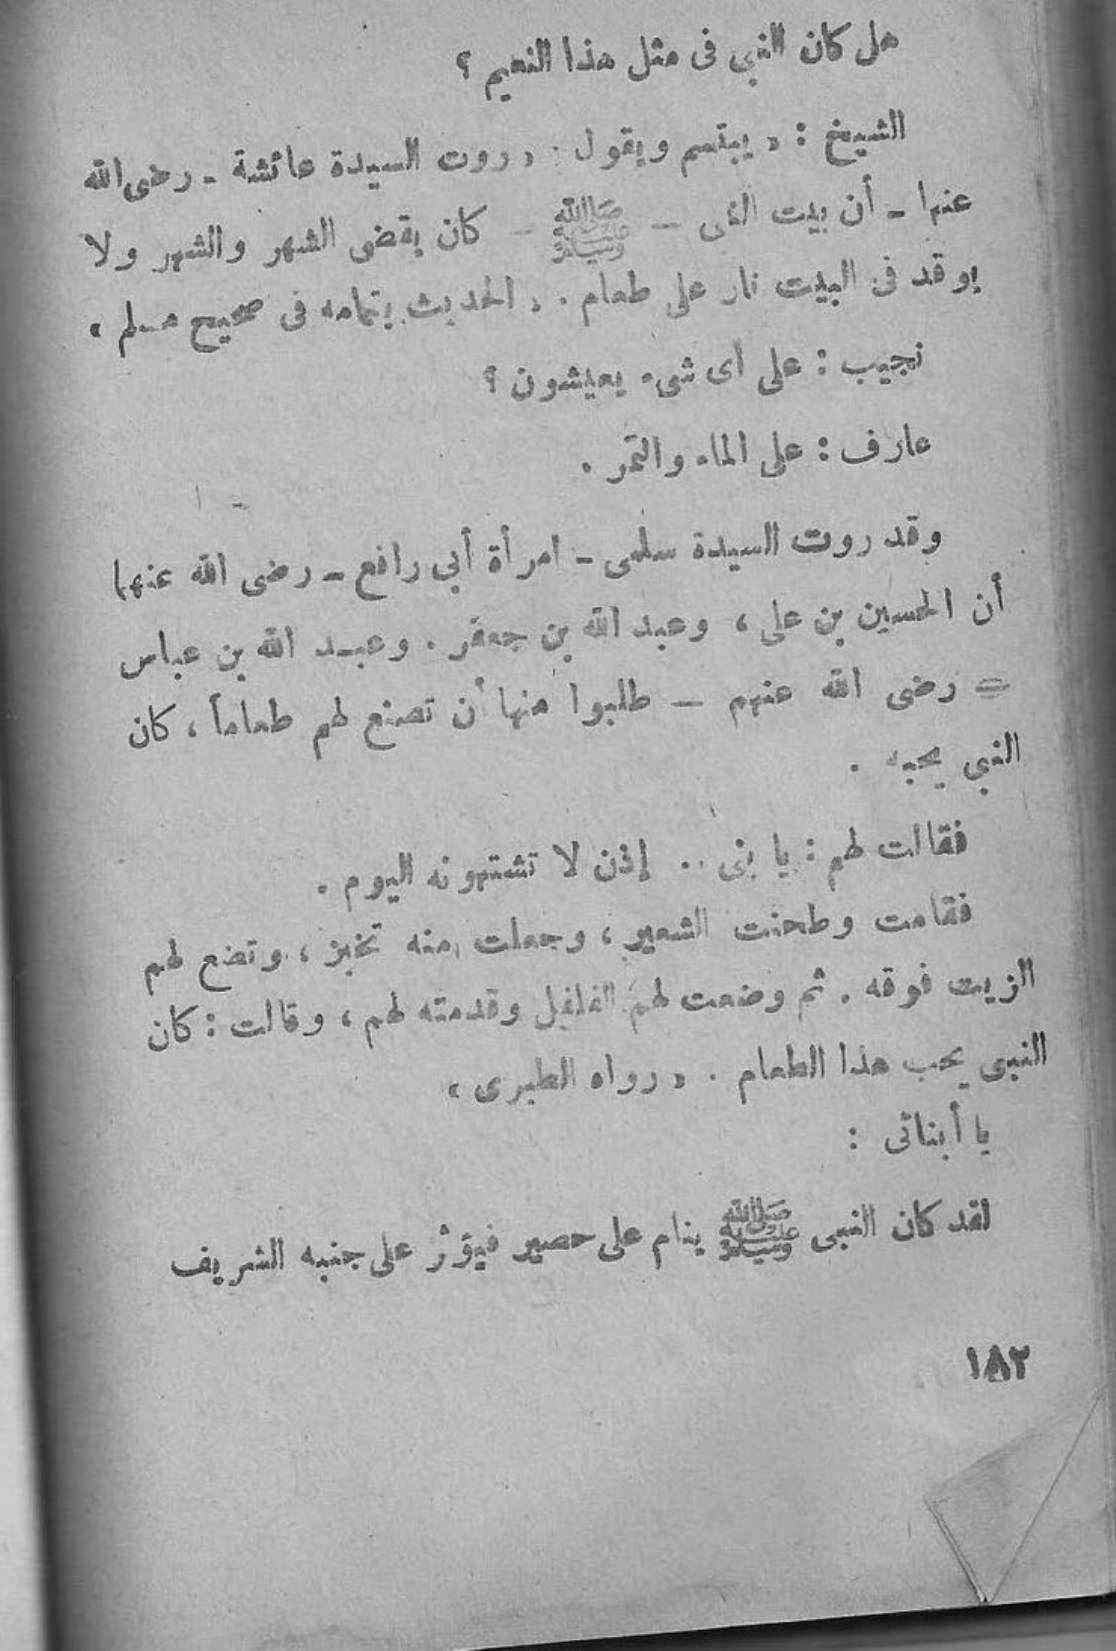 هل كان النبى فى مثل هذا النعيم ؟
الشيخ : « يبتسم ويقول : « روت السيدة عائشة - رضى الله
عنها - أن بيت النبى - ﷺ - كان يقضى الشهر والشهر ولا
يوقد فى البيت نار على طعام . « الحديث بتمامه فى صحيح مسلم »
نجيب : على أى شىء يعيشون ؟
عارف : على الماء والتمر .
وقد روت السيدة سلمى - امرأة أبى رافع - رضى الله عنهما
أن الحسين بن على ، وعبد الله بن جعفر . وعبد الله بن عباس
- رضى الله عنهم - طلبوا منها أن تصنع لهم طعاماً ، كان
النبى يحبه .
فقالت لهم : يا بنى .. إذن لا تشتهونه اليوم .
فقامت وطحنت الشعير ، وجعلت منه تخبز ، وتضع لهم
الزيت فوقه . ثم وضعت لهم الفلفل وقدمته لهم ، وقالت : كان
النبى يحب هذا الطعام . « رواه الطبرى »
يا أبنائى :
لقد كان النبى ﷺ ينام على حصير فيؤثر على جنبه الشريف
١٨٢